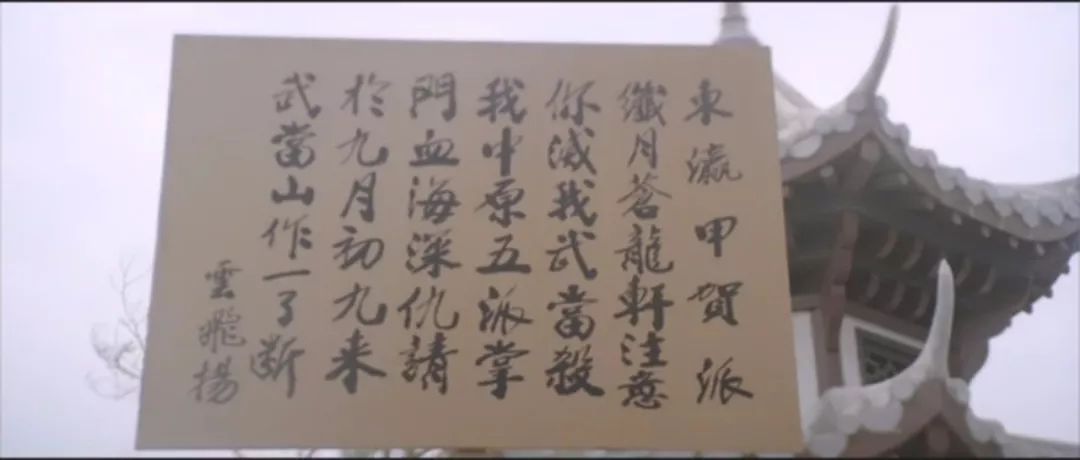 東瀛甲賀派
纖月蒼龍軒注意
你滅我武當殺
我中原五派掌
門血海深仇請
於九月初九来
武當山作一了断
雲飛揚